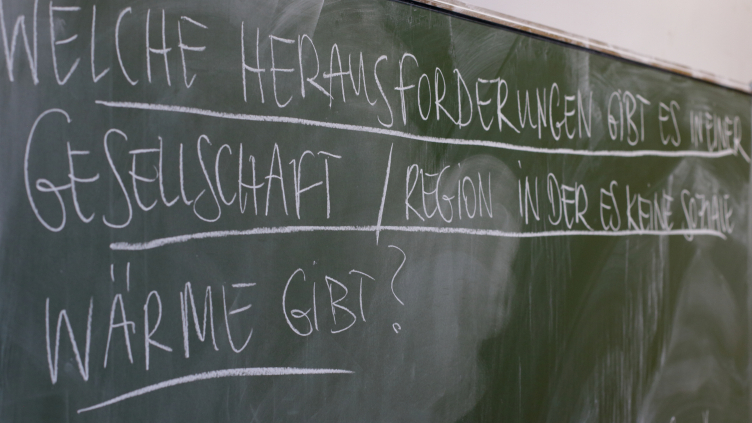 WELCHE HERAUSFORDERUNGEN GIBT ES IN EINER
GESELLSCHAFT / REGION IN DER ES KEINE SOZIALE
WÄRME GIBT?